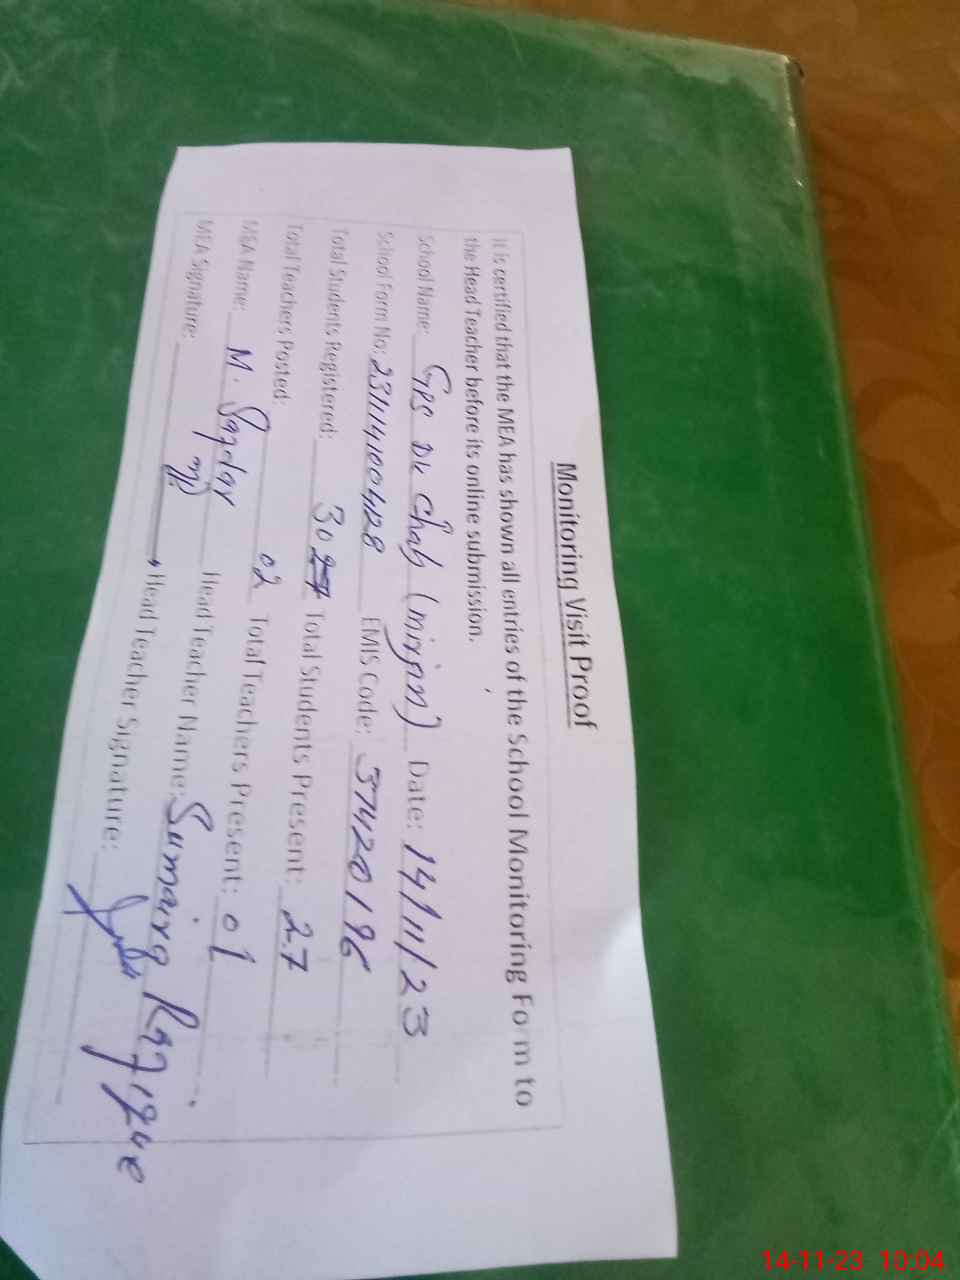 Monitoring Visit Proof
It is certified that the MEA has shown all entries of the School Monitoring Form to
the Head Teacher before its online submission.
School Name: GPS Dk Chah (mirjan) Date: 14/11/23
School Form No: 231114100428 EMIS Code: 37420196
Total Students Registered: 30 Total Students Present: 27
Total Teachers Posted: 02 Total Teachers Present: 01
MEA Name: M. Safdar Head Teacher Name: Sumaira
MEA Signature: Head Teacher Signature:
14-11-23 10:04